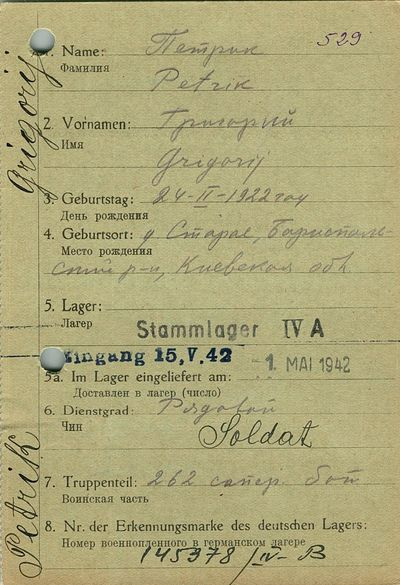 529
1. Name: Петрик
Фамилия
Petrik
2. Vornamen: Григорий
Имя
Grigorij
3. Geburtstag: 24-II-1922 год
День рождения
4. Geburtsort: д Старое, Борисполь-
Место рождения
ский р-н, Киевская обл.
5. Lager:
Лагер
Stammlager IV A
Eingang 15.V.42
- 1. MAI 1942
5a. Im Lager eingeliefert am:
Доставлен в лагер (число)
6. Dienstgrad: Рядовой
Чин
Soldat
7. Truppenteil: 262 сапер. бат
Воинская часть
8. Nr. der Erkennungsmarke des deutschen Lagers:
Номер военнопленного в германском лагере
145378/IV-B
Grigorij
Petrik